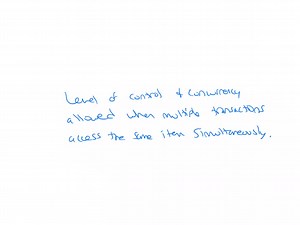 Level of control & concurrency
allowed when multiple transactions
access the same item simultaneously.